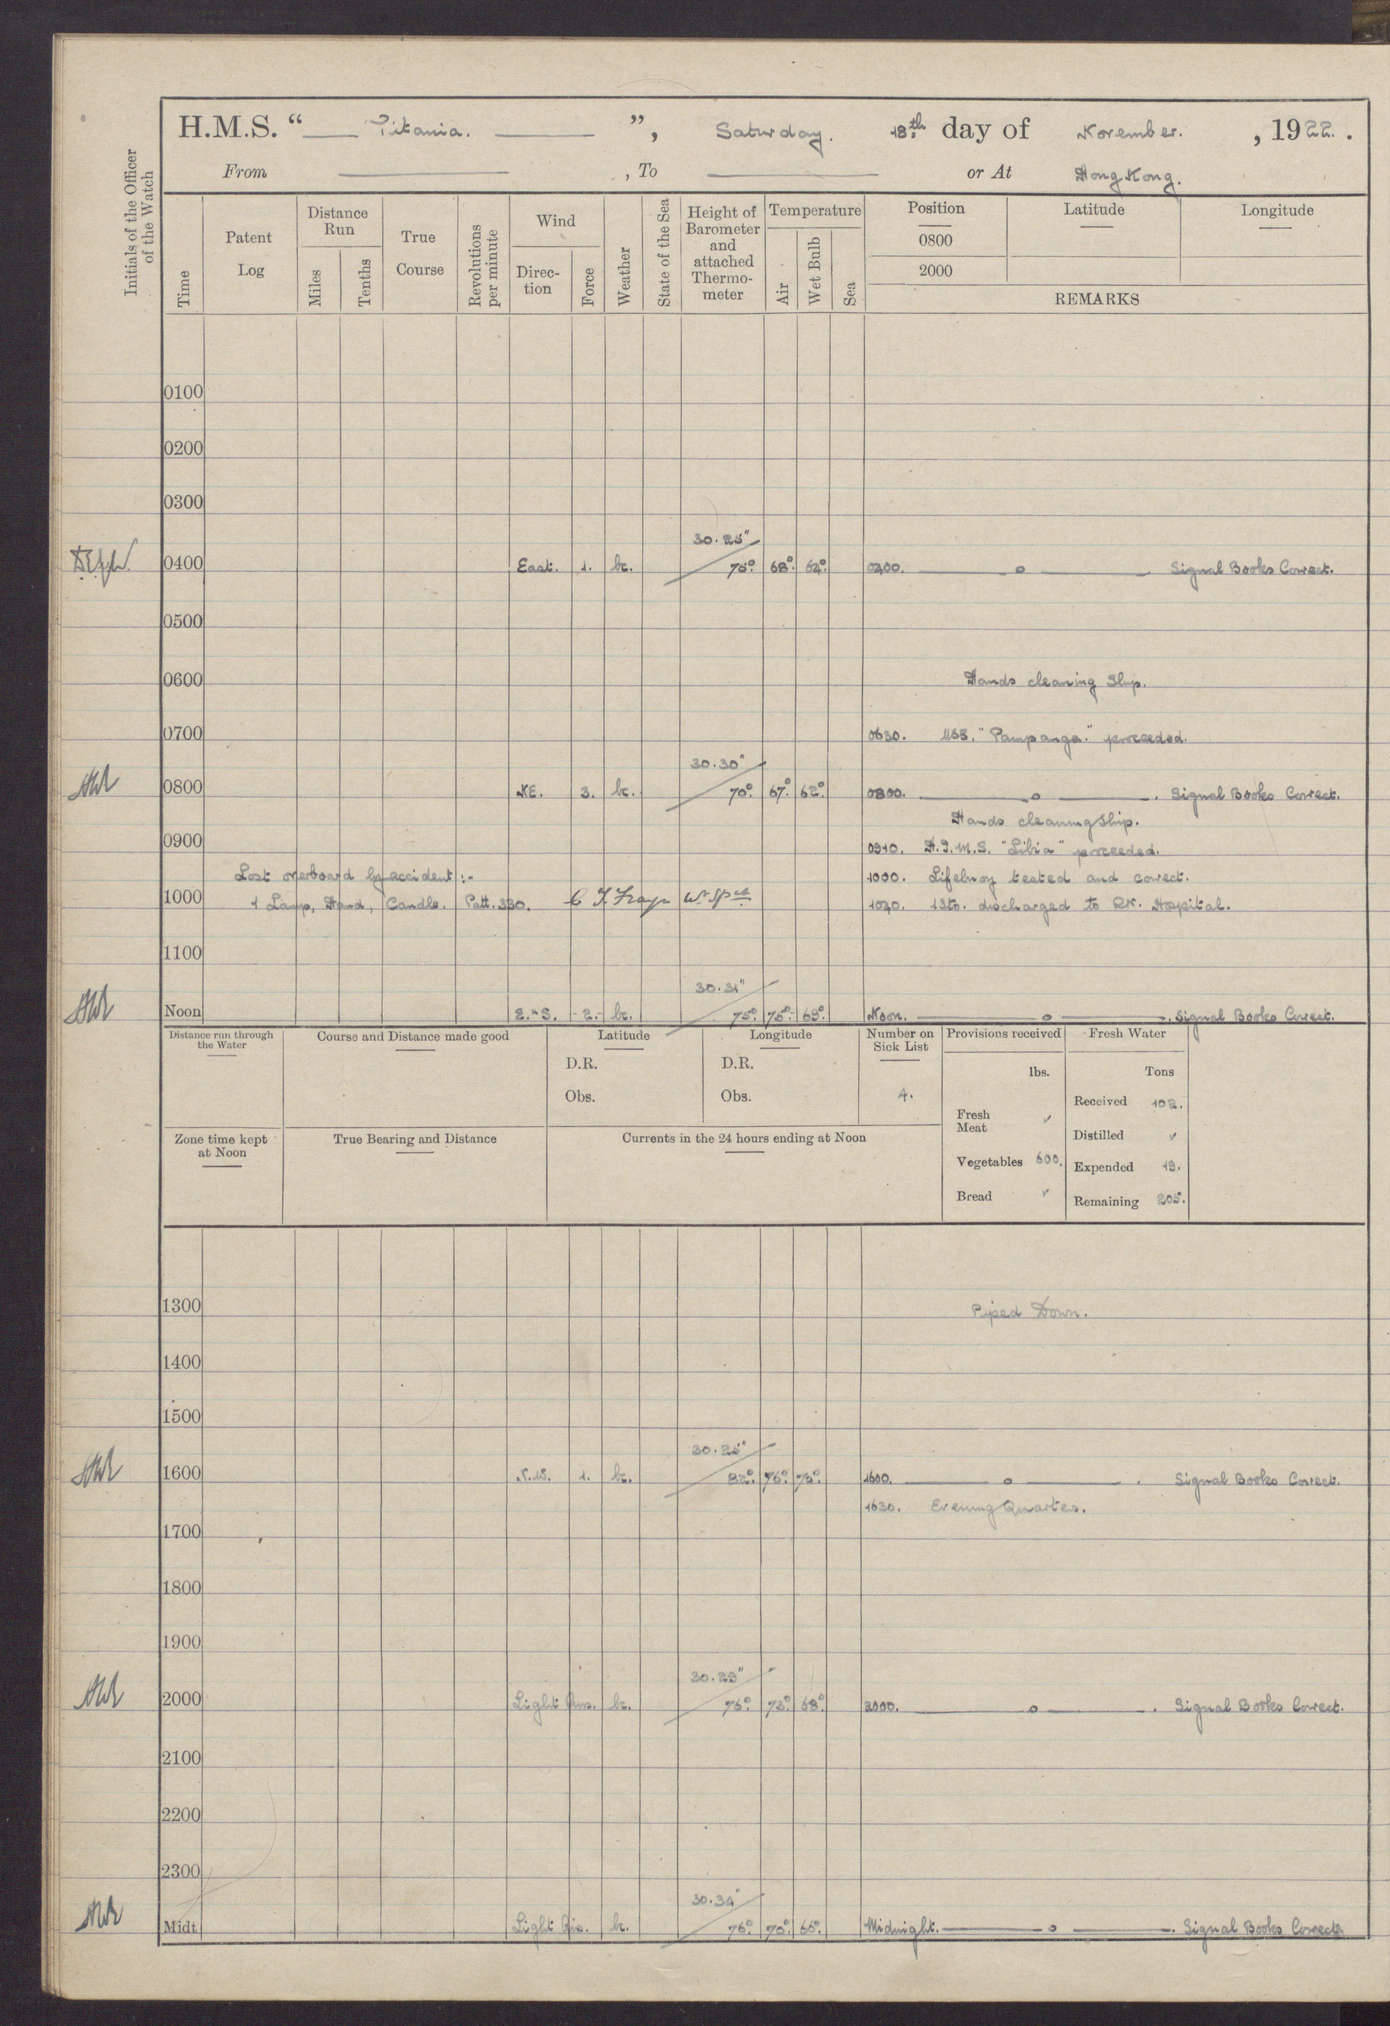 H.M.S. “ Titania. ”, Saturday. 18th day of November. , 1922.
From , To or At Hong Kong.
Initials of the Officer of the Watch
Time
Patent Log
Distance Run
Miles
Tenths
True Course
Revolutions per minute
Wind
Direction
Force
Weather
State of the Sea
Height of Barometer and attached Thermometer
Temperature
Air
Wet Bulb
Sea
Position
0800
2000
Latitude
Longitude
REMARKS
0100
0200
0300
30.25"
0400 East. 1. bc. 75°. 68°. 64°. 0400. o Signal Books Correct.
0500
0600 Hands cleaning Ship.
0700 0630. USS. "Pampanga." proceeded.
30.30"
0800 NE. 3. bc. 70°. 67°. 62°. 0800. o . Signal Books Correct.
Hands cleaning Ship.
0900 0910. H.I.M.S. "Libia" proceeded.
Lost overboard by accident :- 1000. Lifebuoy tested and correct.
1000 1 Lamp, Hand, Candle. Patt. 330. 1040. 1 Sto. discharged to RN. Hospital.
1100
30.31"
Noon 2.-3. 2. bc. 75°. 75°. 69°. Noon. o . Signal Books Correct.
Distance run through the Water
Course and Distance made good
Latitude
D.R.
Obs.
Longitude
D.R.
Obs.
Number on Sick List
4.
Provisions received
lbs.
Fresh Meat ✓
Vegetables 600.
Bread ✓
Fresh Water
Tons
Received 102.
Distilled ✓
Expended 19.
Remaining 205.
Zone time kept at Noon
True Bearing and Distance
Currents in the 24 hours ending at Noon
1300 Piped Down.
1400
1500
30.25"
1600 N.W. 1. bc. 82°. 76°. 73°. 1600. o . Signal Books Correct.
1630. Evening Quarters.
1700
1800
1900
30.29"
2000 Light Airs. bc. 76°. 73°. 68°. 2000. o . Signal Books Correct.
2100
2200
2300
30.34"
Midt. Light Airs. bc. 76°. 70°. 65°. Midnight. o . Signal Books Correct.